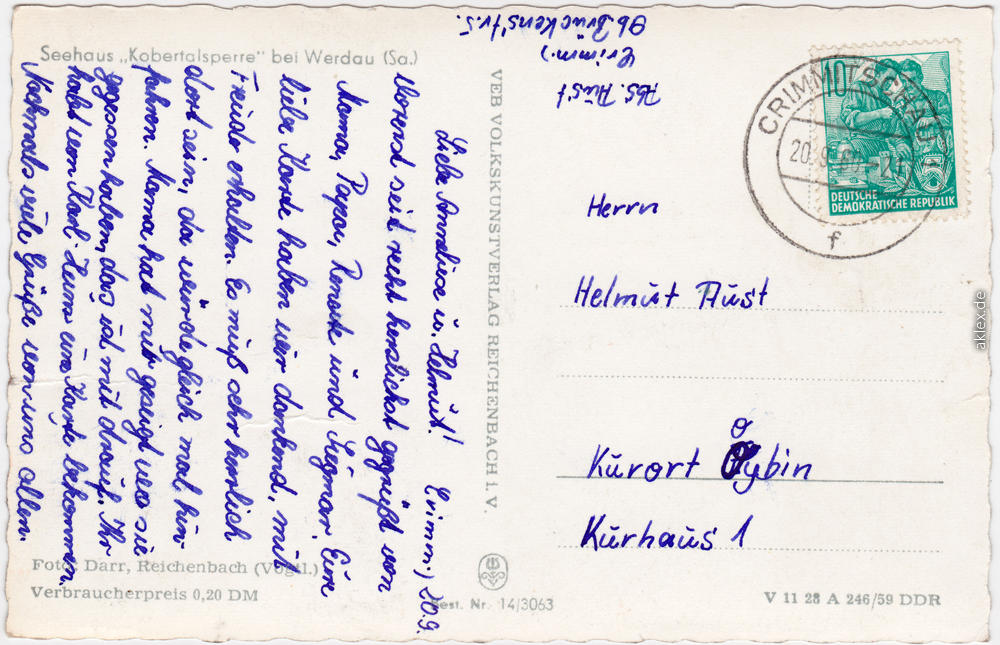 Seehaus „Kobertalsperre" bei Werdau (Sa.)
Crimm., 20.9.
Liebe Anneliese u. Helmut!
Vorerst seit recht herzlichst gegrüßt von
Mama, Papa, Renate und Sigmar. Eure
liebe Karte haben wir dankend, mit
Freude erhalten. Es muß sehr herrlich
dort sein, da würde gleich mal hin-
fahren. Mama hat mir gesagt was sie
gegessen haben, das ist mit drauf. Ihr
habt von Karl-Heinz eine Karte bekommen.
Nochmals viele Grüße von uns allen.
Foto: Darr, Reichenbach (Vogtl.)
Verbraucherpreis 0,20 DM
VEB VOLKSKUNSTVERLAG REICHENBACH I. V.
Best. Nr. 14/3063
Abs. Aust
Crimm.)
Ob. Brückenstr. 5.
10
DEUTSCHE
DEMOKRATISCHE REPUBLIK
CRIMMITSCHAU
20.9.
f
Herrn
Helmut Aust
Kurort Oybin
Kurhaus 1
V 11 28 A 246/59 DDR
aklex.de